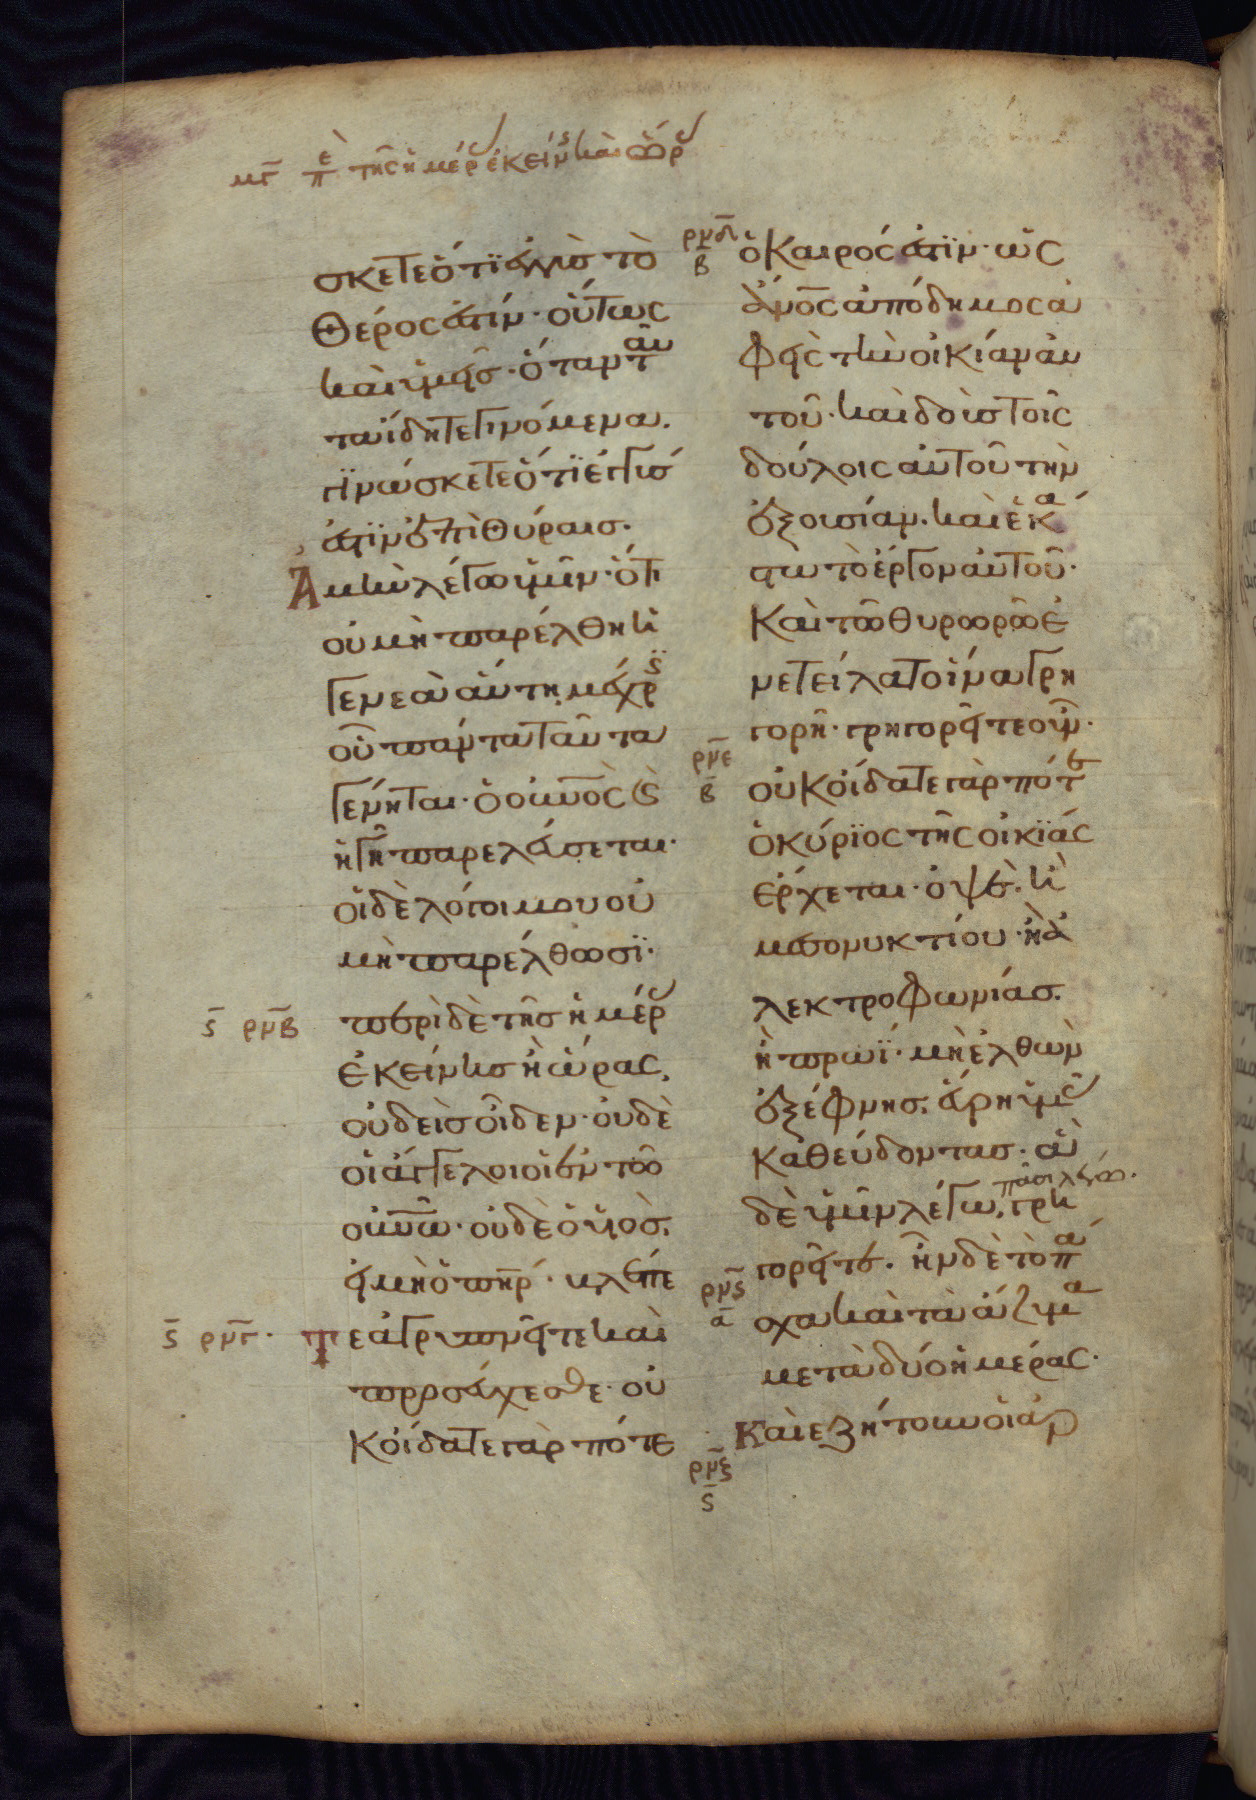 μγ̅ πὲ τῆς ἡμέρ ἐκείνς καὶ ὥρ
σκετε ὅτι ἐγγὺσ τὸ
θέρος ἐστίν· οὕτως
καὶ ὑμεῖσ· ὅταν ταῦ
τα ἴδητε γινόμενα.
γϊνώσκετε ὅτϊ ἐγγύσ
ἐστϊν ἐπὶ θύραισ.
Ἀμὴν λέγω ὑμῖν· ὅτι
οὐ μὴ παρέλθη ἡ
γενεὰ αὕτη, μέχρϊς
οὗ πάντα ταῦτα
γένηται· ὁ οὐνος̅ ϗ
ἡ γῆ παρελεύσεται·
οἱ δὲ λόγοι μου οὐ
μὴ παρέλθωσϊ·
ς̅ ρμ̅β περὶ δὲ τῆσ ἡμέρ
ἐκείνησ ἢ ὥρας,
οὐδεὶσ οἶδεν· οὐδὲ
οἱ ἄγγελοι οἱ ἐν τῶ
οὐνω̅· οὐδὲ ὁ υἱὸσ,
εἰ μὴ ὁ πη̅ρ· βλέπε
ς̅ ρμ̅γ· τε ἀγρυπνεῖτε καὶ
προσεύχεσθε· οὐ
κ οἴδατε γὰρ πότε
ρμ̅δ β ὁ καιρός ἐστϊν· ὡς
ἄνο̅ς ἀπόδημος ἀ
φεὶς τὴν οἰκίαν αὐ
τοῦ· καὶ δοὺσ τοῖς
δούλοις αὐτοῦ τὴν
ἐξουσίαν. καὶ ἑκά
στω τὸ ἔργον αὐτοῦ·
Καὶ τῶ θυρωρῶ ἐ
νετείλατο ἵνα γρη
γορῆ· γρηγορεῖτε οὖν·
ρμ̅ε β̅ οὐκ οἴδατε γὰρ πότε
ὁ κύρϊος τῆς οἰκϊάς
ἔρχεται· ὀψὲ. ἢ
μεσονυκτίου· ἢ ἀ
λεκτροφωνίασ.
ἢ πρωΐ· μὴ ἐλθὼν
ἐξέφνησ, εὕρη ὑμᾶς
καθεύδοντασ· ἃ
δὲ ὑμῖν λέγω, πᾶσι λέγω. γρη
γορεῖτε. ἦν δὲ τὸ πά
ρμ̅ς α̅ σχα καὶ τὰ ἄζυμα
μετὰ δύο ἡμέρας·
ρμ̅ζ ς̅ Καὶ ἐζήτουν οἱ ἀρ